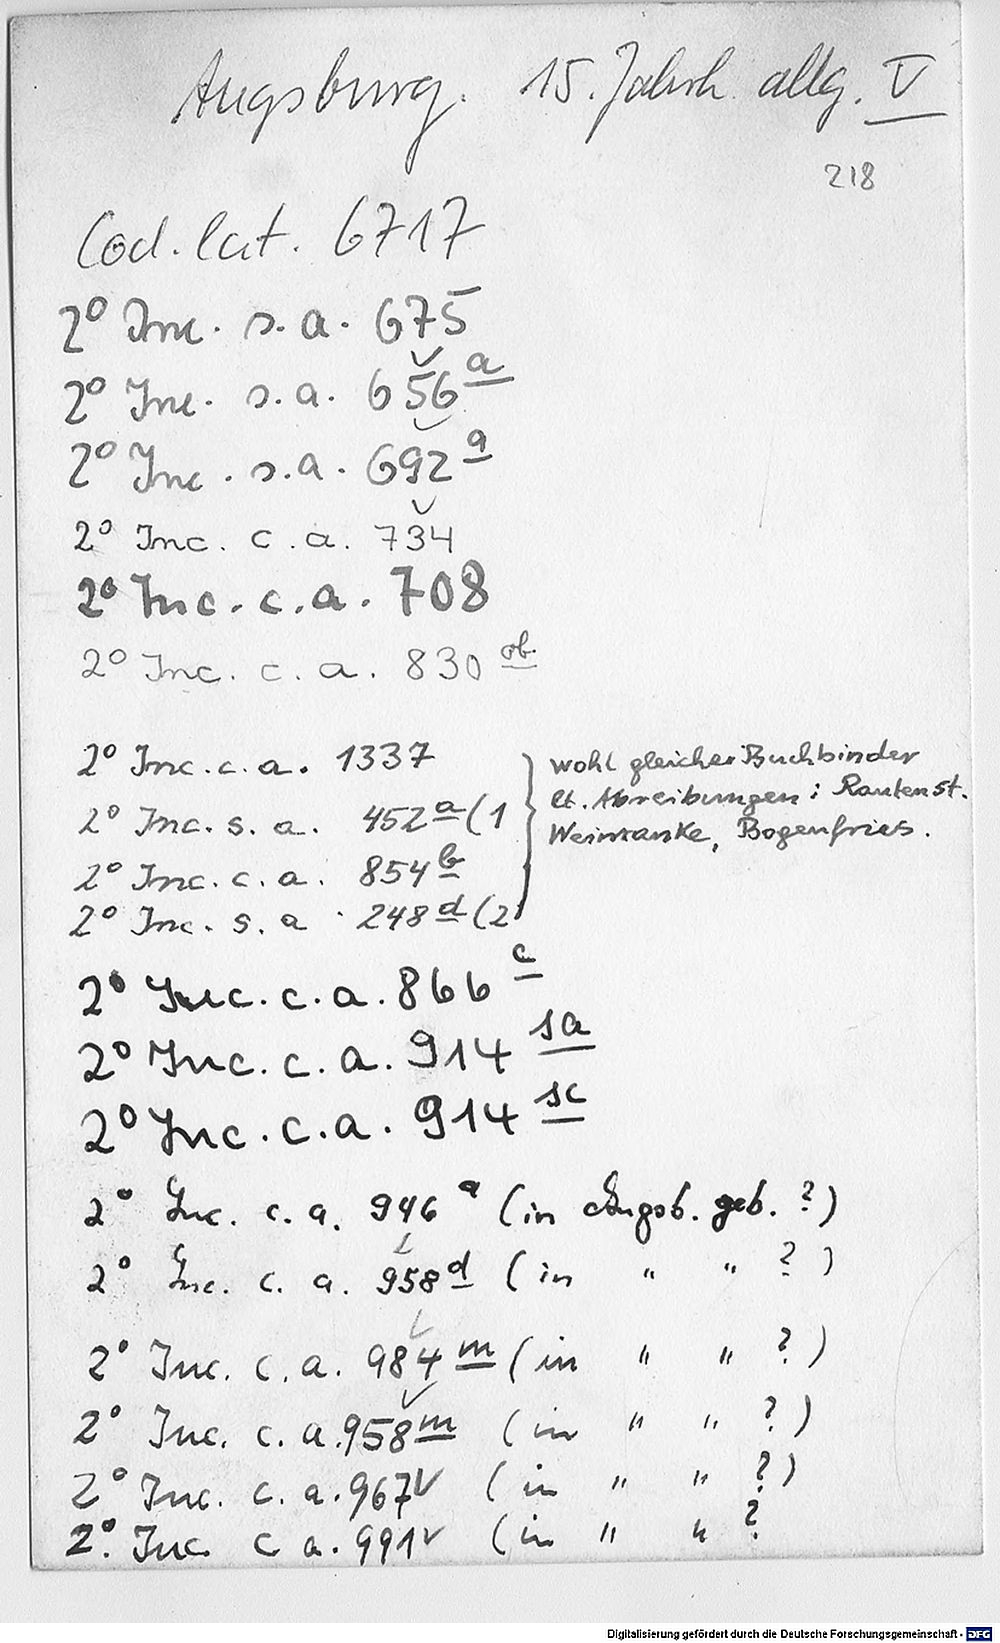 Augsburg. 15. Jahrh. allg. V
218
Cod. lat. 6717
2° Inc. s. a. 675
2° Inc. s. a. 656 a
2° Inc. s. a. 692 a
2° Inc. c. a. 734
2° Inc. c. a. 708
2° Inc. c. a. 830
2° Inc. c. a. 1337
2° Inc. s. a. 452 a (1
2° Inc. c. a. 854 b
2° Inc. s. a. 248 d (2
wohl gleicher Buchbinder
lt. Abreibungen: Rautenst.
Weinranke, Bogenfries.
2° Inc. c. a. 866 c
2° Inc. c. a. 914 sa
2° Inc. c. a. 914 sc
2° Inc. c. a. 946 a (in Augsb. geb. ?)
2° Inc. c. a. 958 d (in " " ?)
2° Inc. c. a. 984 m (in " " ?)
2° Inc. c. a. 958 m (in " " ?)
2° Inc. c. a. 967 (in " " ?)
2° Inc. c a. 991 (in " " ?
Digitalisierung gefördert durch die Deutsche Forschungsgemeinschaft - DFG